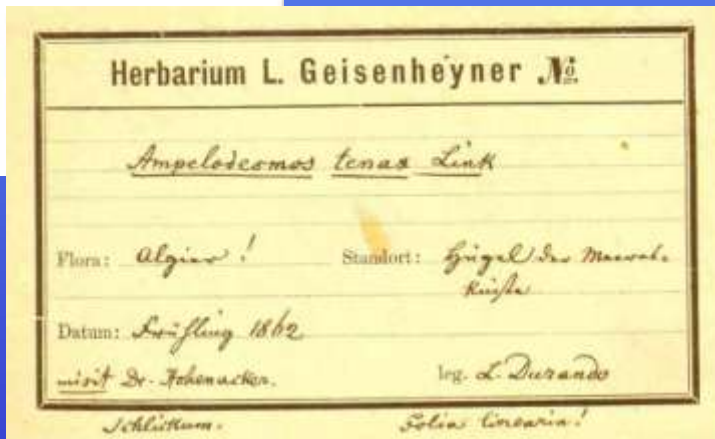 Herbarium L. Geisenheyner №
Ampelodesmos tenax Link
Flora: Algier! Standort: Hügel der Meeres-
küste
Datum: Frühling 1862
misit Dr. Hohenacker. leg. L. Durando
Schlickum. Folia linearia!